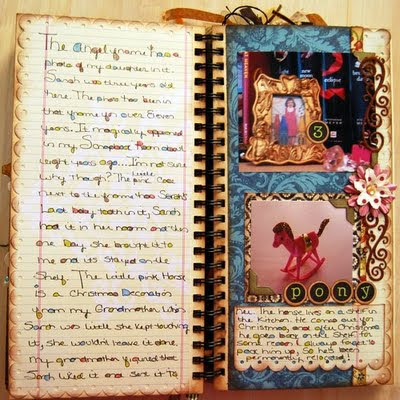 The Angel frame has a
photo of my daughter in it.
Sarah was three years old
there. The photo has been in
that frame for over Eleven
years. It magically appeared
in my Scrapbook Room about
eight years ago... I'm not sure
why though? The little pink case
next to the frame has Sarah's
last baby tooth in it, Sarah
had it in her room and then
one Day she brought it to
me and its stayed on the
Shelf. The little pink Horse
is a Christmas Decoration
from my Grandmother. When
Sarah was little she kept touching
it, she wouldn't leave it alone,
my grandmother figured that
Sarah liked it and sent it To
new
moon
eclipse
3
pony
her. The horse lives on a shelf in
the Kitchen. He comes out for
Christmas, and after Christmas
he goes back on the shelf for
some reason I always forget to
pack him up, so he's been
permanently reloacted!